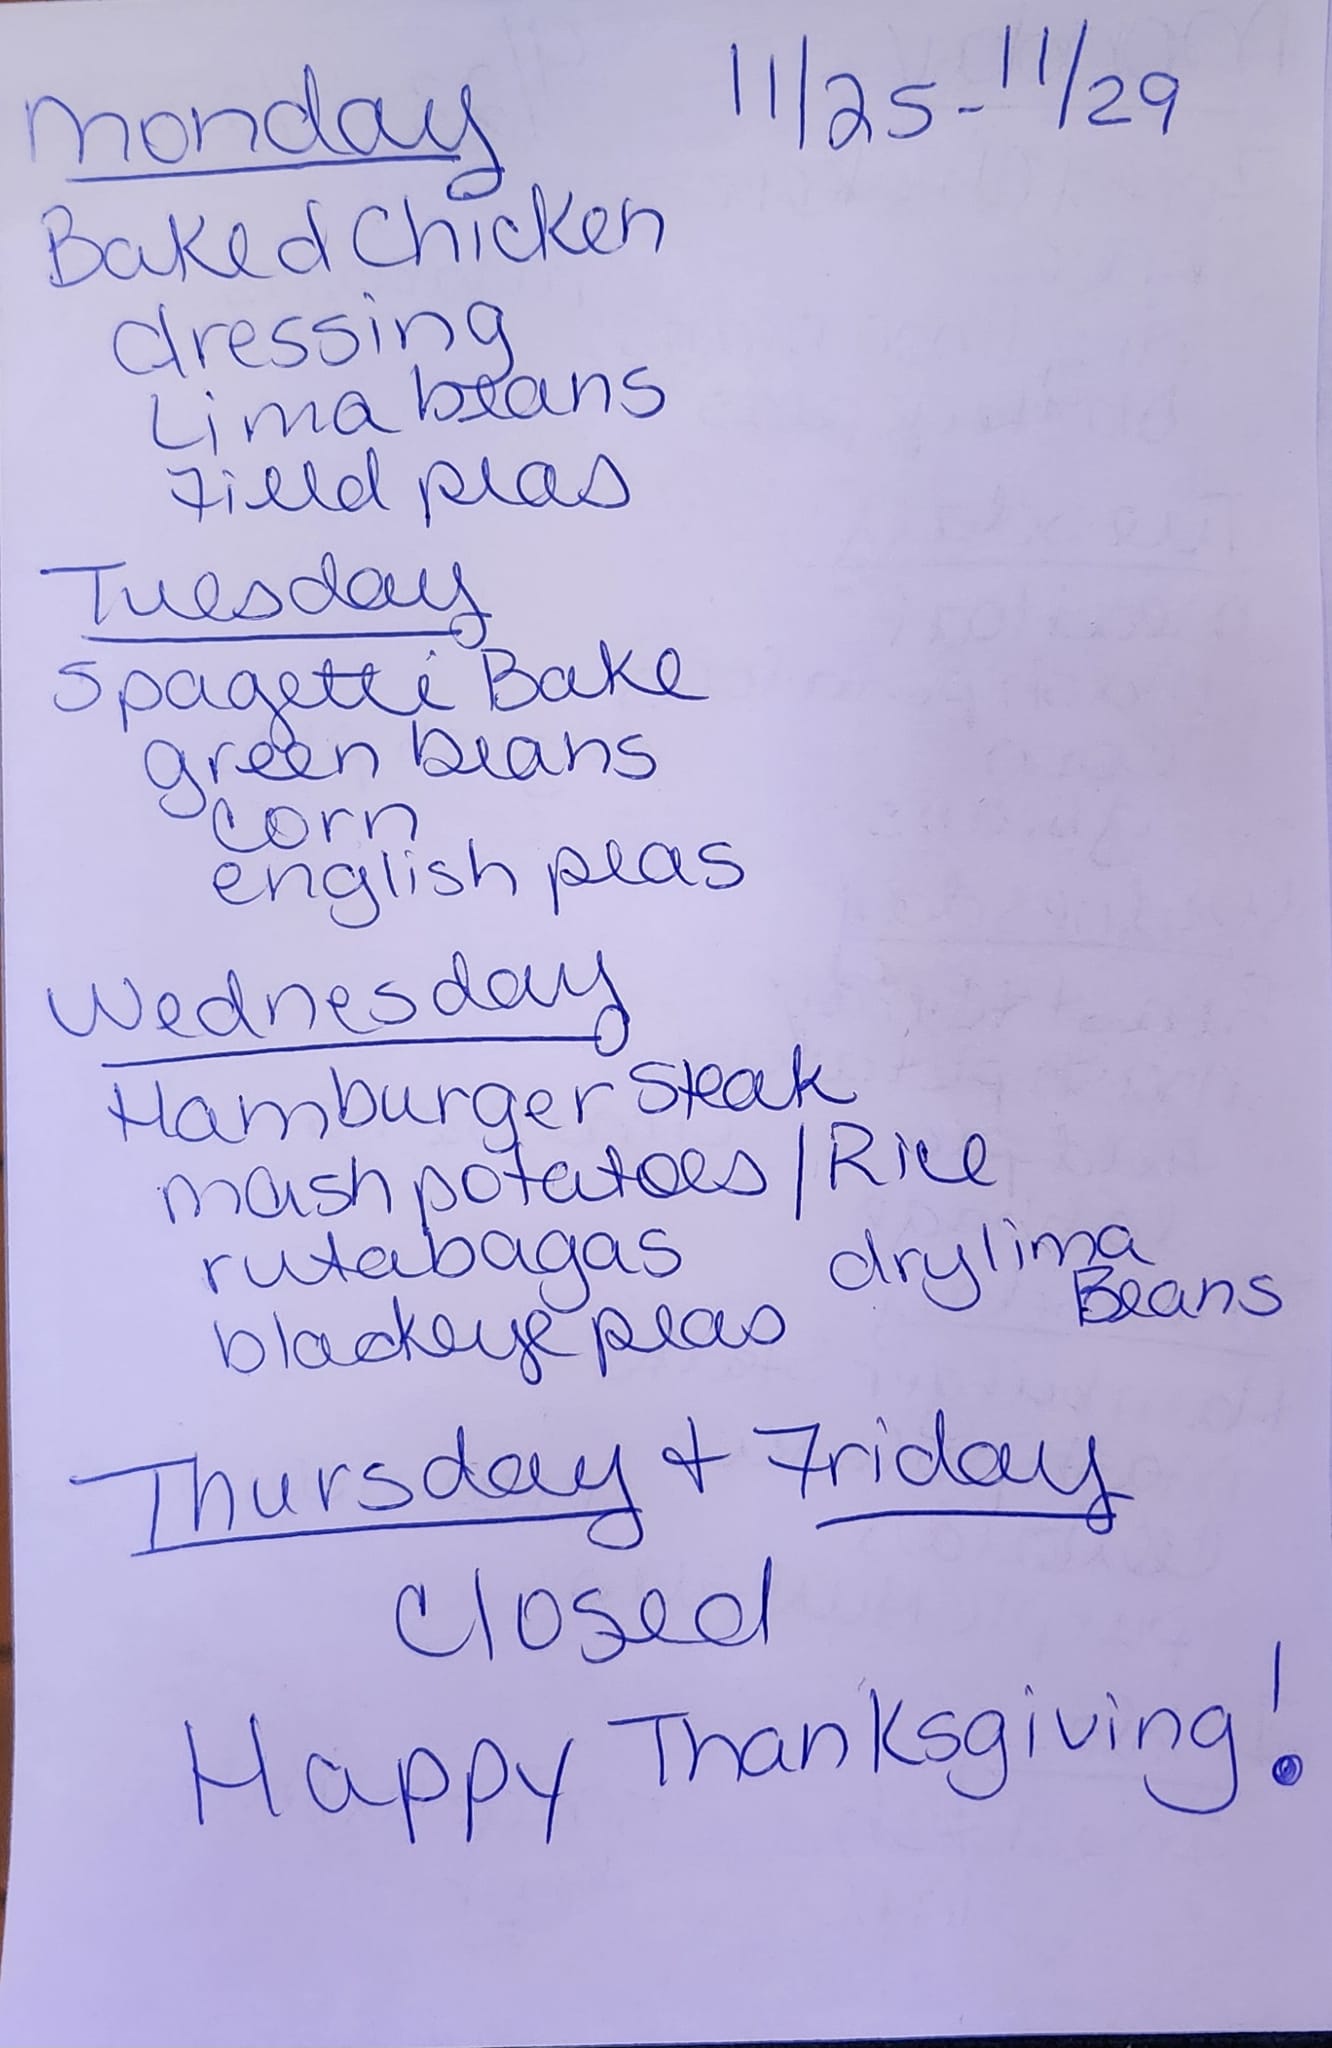 Monday 11/25-11/29
Baked Chicken
dressing
Lima beans
Field peas
Tuesday
Spagetti Bake
green beans
corn
english peas
Wednesday
Hamburger Steak
mash potatoes/Rice
rutabagas dry lima
Beans
blackeye peas
Thursday + Friday
Closed
Happy Thanksgiving!